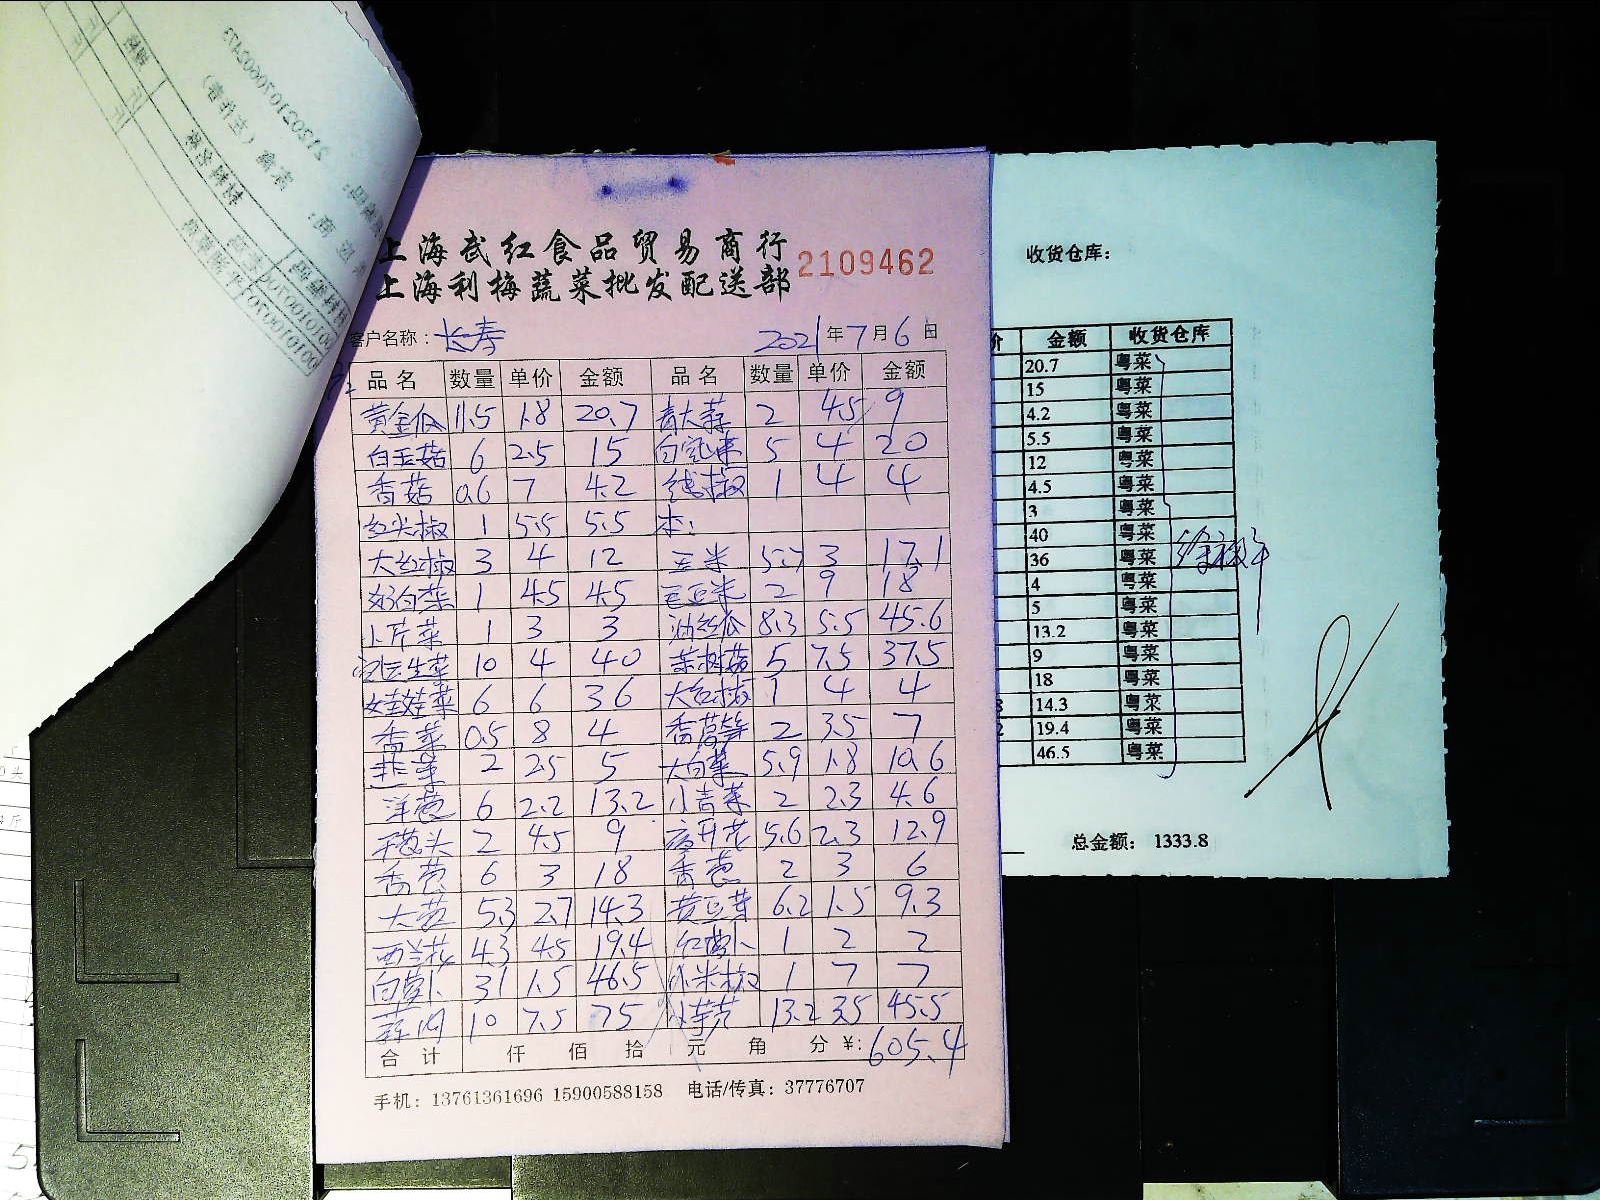 上海武红食品贸易商行
上海利梅蔬菜批发配送部
2109462
客户名称：长寿 2021年7月6日
品名 数量 单价 金额 品名 数量 单价 金额
黄金瓜 11.5 1.8 20.7 青大蒜 2 4.5 9
白玉菇 6 2.5 15 5 4 20
香菇 0.6 7 4.2 线椒 1 4 4
红尖椒 1 5.5 5.5 本：
大红椒 3 4 12 玉米 5.7 3 17.1
奶白菜 1 4.5 4.5 毛豆米 2 9 18
小芹菜 1 3 3 油丝瓜 8.3 5.5 45.6
生菜 10 4 40 茶树菇 5 7.5 37.5
娃娃菜 6 6 36 大红椒 1 4 4
香菜 0.5 8 4 香莴笋 2 3.5 7
韭菜 2 2.5 5 大白菜 5.9 1.8 10.6
洋葱 6 2.2 13.2 小青菜 2 2.3 4.6
干葱头 2 4.5 9 5.6 2.3 12.9
香葱 6 3 18 香葱 2 3 6
大葱 5.3 2.7 14.3 黄豆芽 6.2 1.5 9.3
西兰花 4.3 4.5 19.4 红萝卜 1 2 2
白萝卜 31 1.5 46.5 小米椒 1 7 7
蒜肉 10 7.5 75 小芋艿 13.2 3.5 45.5
合计 仟 佰 拾 元 角 分 ¥：605.4
手机：13761361696 15900588158 电话/传真：37776707
收货仓库：
价 金额 收货仓库
20.7 粤菜
15 粤菜
4.2 粤菜
5.5 粤菜
12 粤菜
4.5 粤菜
3 粤菜
40 粤菜
36 粤菜
4 粤菜
5 粤菜
13.2 粤菜
9 粤菜
18 粤菜
14.3 粤菜
19.4 粤菜
46.5 粤菜
总金额：1333.8